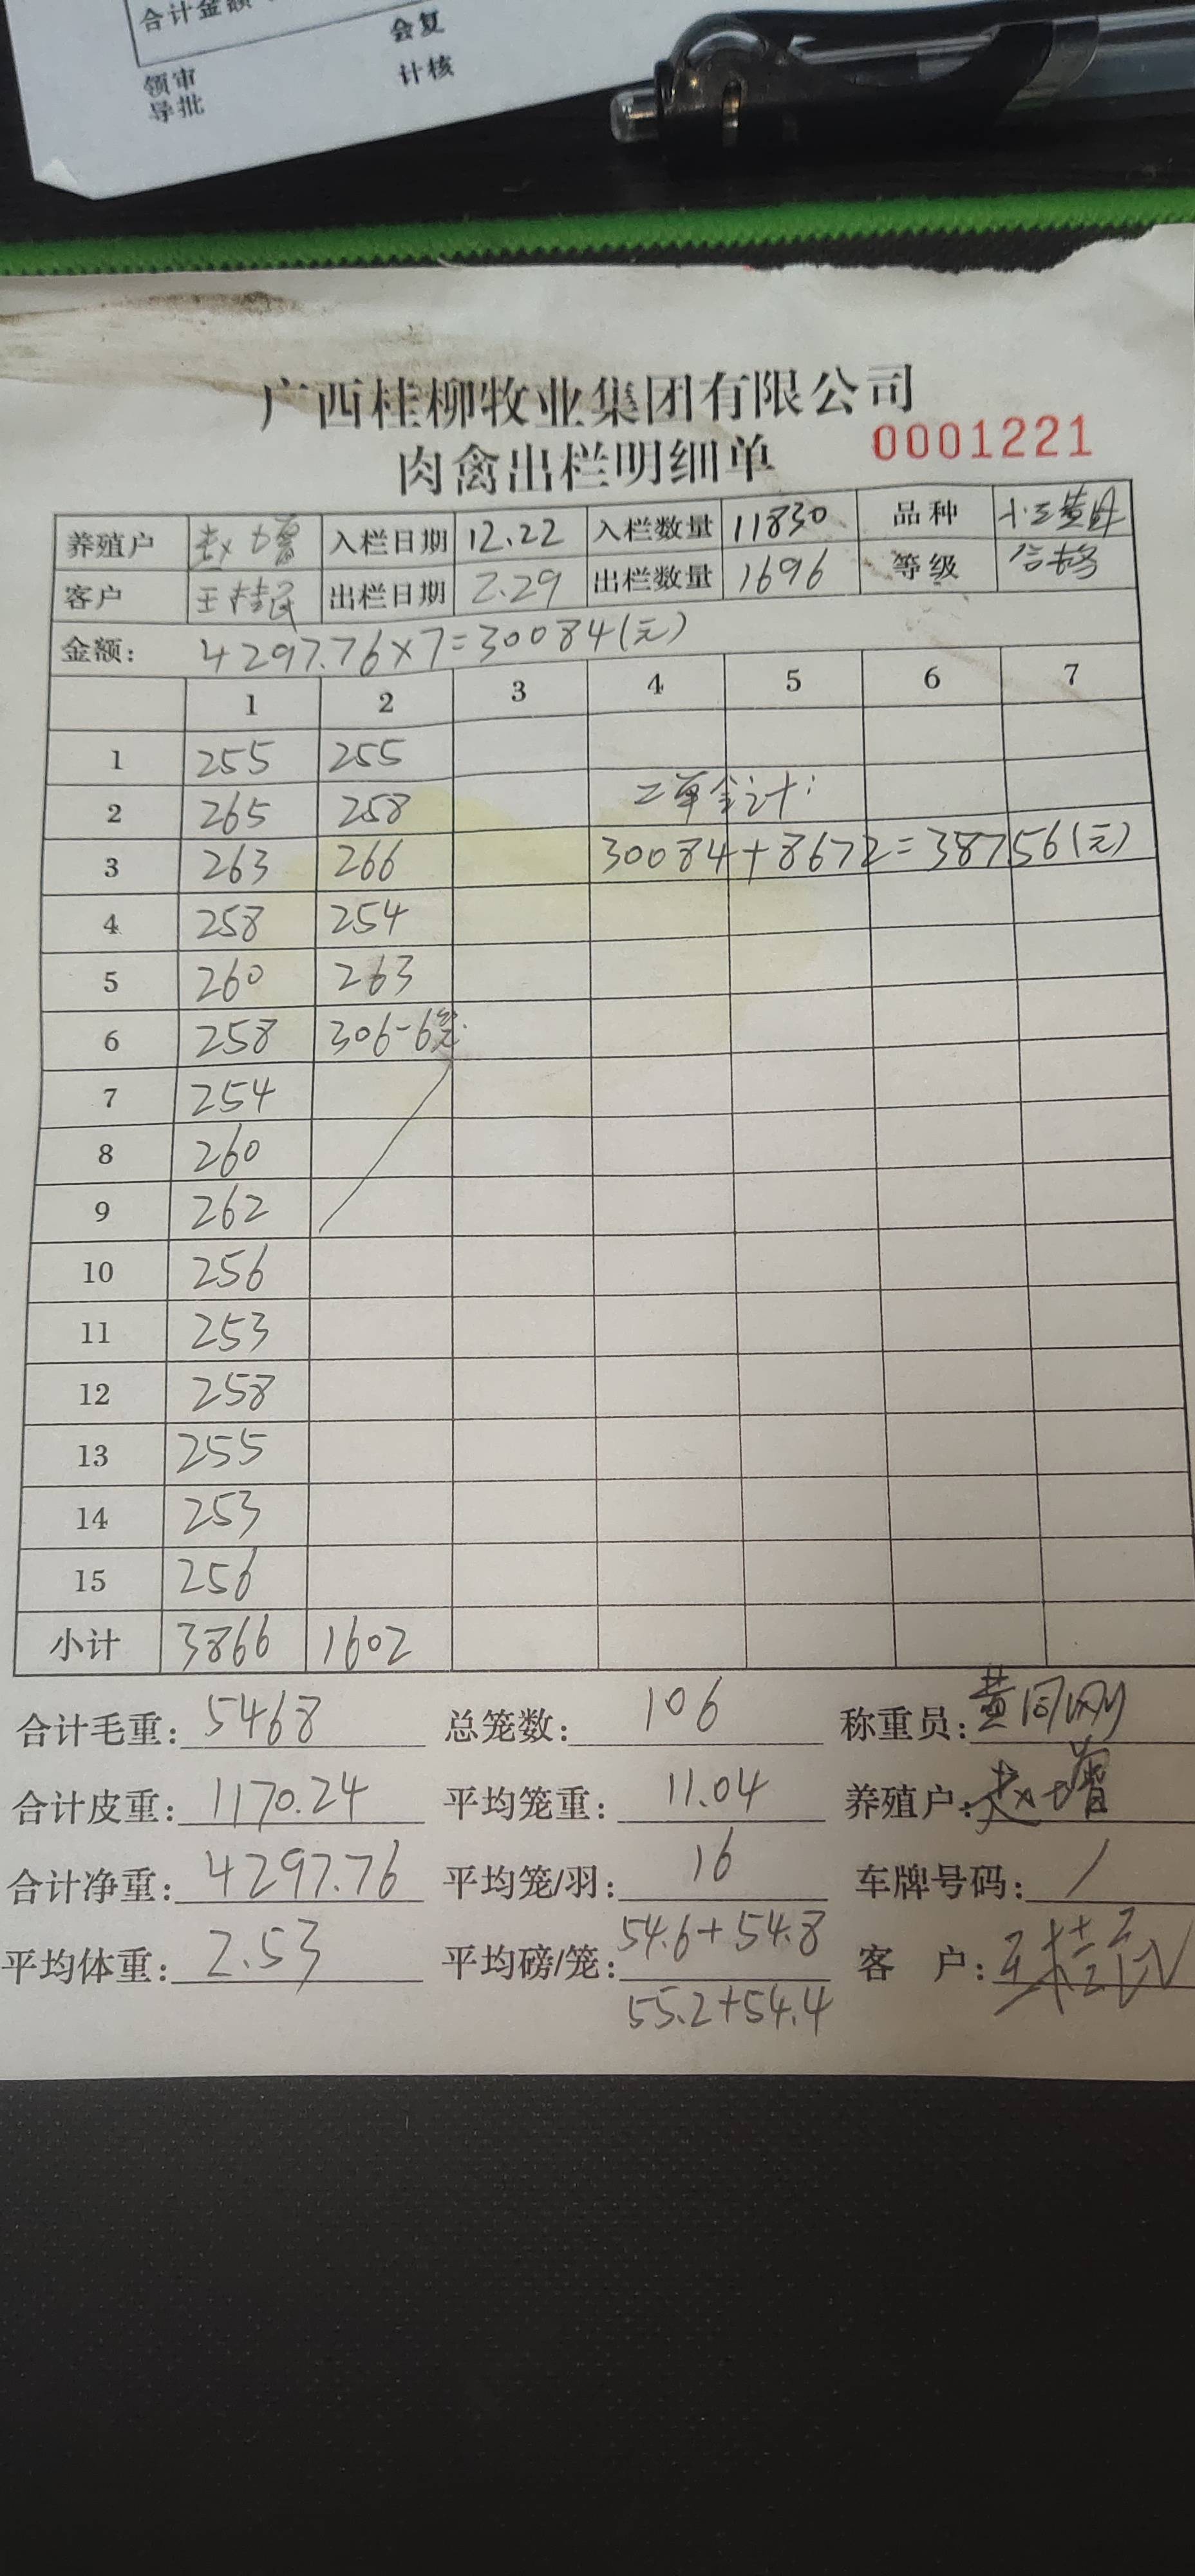 合计金额
会复
计核
领审
导批
广西桂柳牧业集团有限公司
肉禽出栏明细单 0001221
养殖户 赵增 入栏日期 12.22 入栏数量 11830 品种
客户 王桂民 出栏日期 2.29 出栏数量 1696 等级 合格
金额: 4297.76×7=30084(元)
1 2 3 4 5 6 7
1 255 255
2 265 258 二单合计:
3 263 266 30084+8672=38756(元)
4 258 254
5 260 263
6 258 306-6笼
7 254
8 260
9 262
10 256
11 253
12 258
13 255
14 253
15 256
小计 3866 1602
合计毛重: 5468 总笼数: 106 称重员: 黄同刚
合计皮重: 1170.24 平均笼重: 11.04 养殖户: 赵增
合计净重: 4297.76 平均笼/羽: 16 车牌号码: /
平均体重: 2.53 平均磅/笼: 54.6+54.8 客 户: 王桂民
55.2+54.4